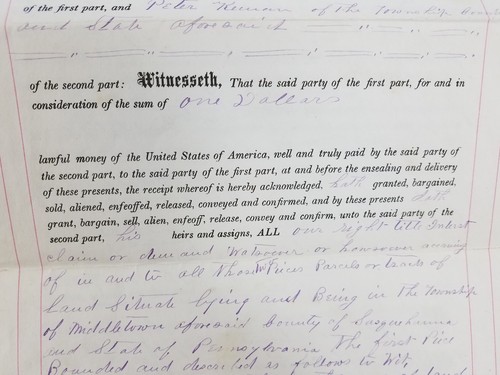 of the first part, and Peter Kernan of the Township
and State aforesaid
of the second part: Witnesseth, That the said party of the first part, for and in
consideration of the sum of One Dollars
lawful money of the United States of America, well and truly paid by the said party of
the second part, to the said party of the first part, at and before the ensealing and delivery
of these presents, the receipt whereof is hereby acknowledged, hath granted, bargained,
sold, aliened, enfeoffed, released, conveyed and confirmed, and by these presents doth
grant, bargain, sell, alien, enfeoff, release, convey and confirm, unto the said party of the
second part, his heirs and assigns, ALL our right title Interest
claim or demand Watsoever or howsoever
of in and to all those Pieces Parcels or tracts of
Land Situate lying and Being in the Township
of Middletown aforesaid County of Susquehanna
and State of Pennsylvania the first Piece
Bounded and described as follows to Wit,
of land